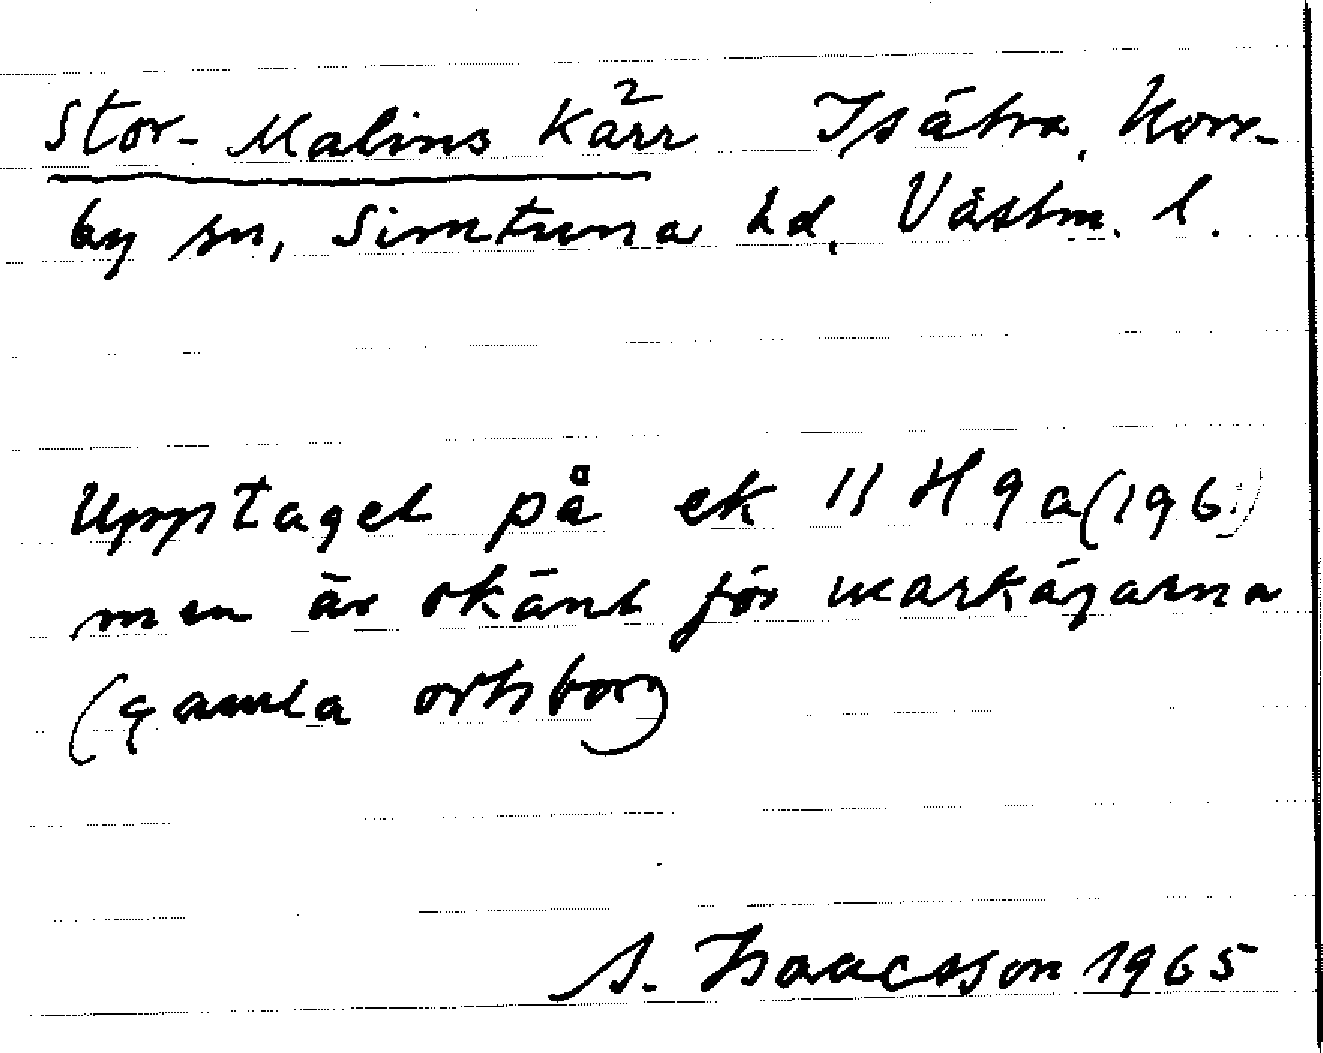 Stor-Malins kärr Isätra, Norr-
by sn, Simtuna hd, Västm. l.
Upptaget på ek 11 H 9 a (196
men är okänt för markägarna
(gamla ortsbor)
A. Isaacsson 1965